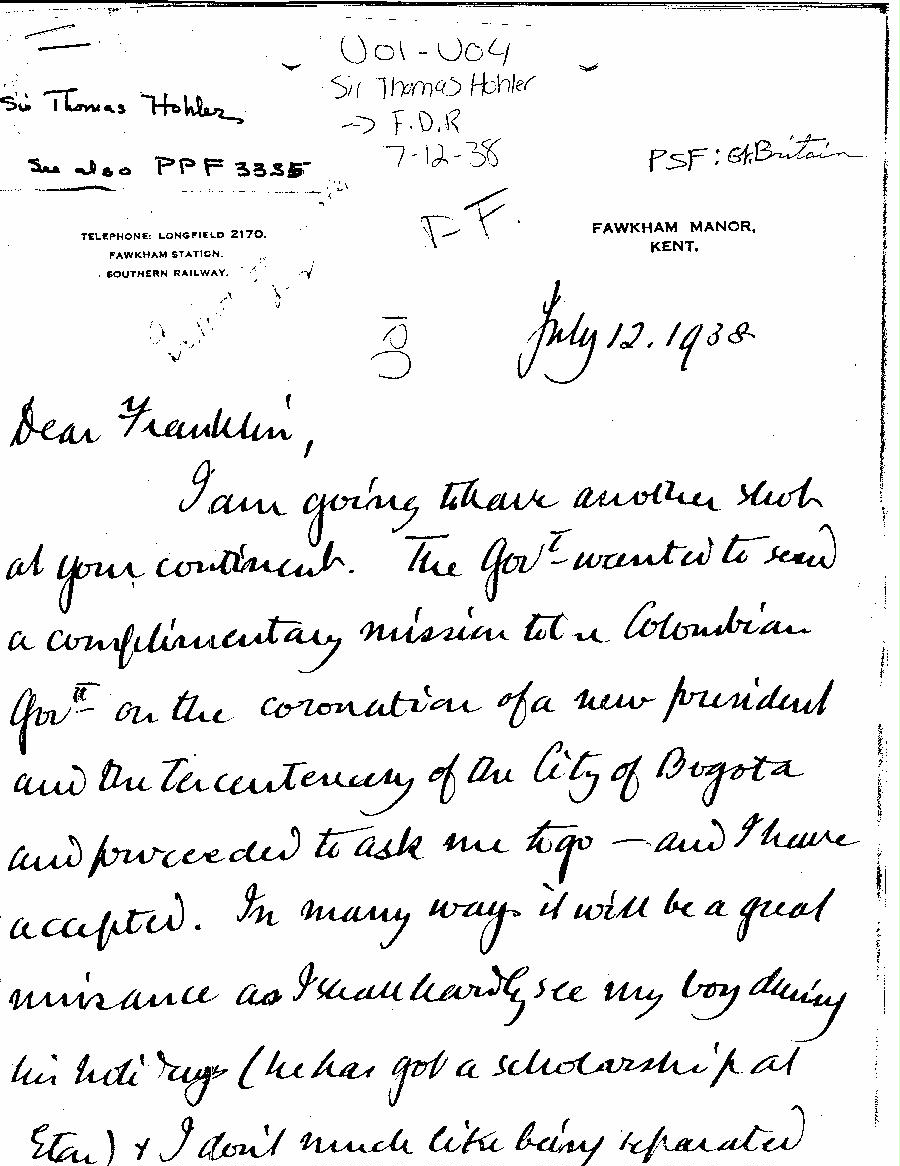 U01-U04
Sir Thomas Hohler
-> F.D.R
7-12-38
Sir Thomas Hohler
See also PPF 3335
PSF: Gt. Britain
TELEPHONE: LONGFIELD 2170.
FAWKHAM STATION.
SOUTHERN RAILWAY.
FAWKHAM MANOR,
KENT.
U01
July 12. 1938
Dear Franklin,
I am going to have another shot
at your continent. The Govt wanted to send
a complimentary mission to the Colombian
Govt on the coronation of a new president
and the tercentenary of the City of Bogota
and proceeded to ask me to go — and I have
accepted. In many ways it will be a great
nuisance as I shall hardly see my boy during
his holidays (he has got a scholarship at
Eton) & I don't much like being separated